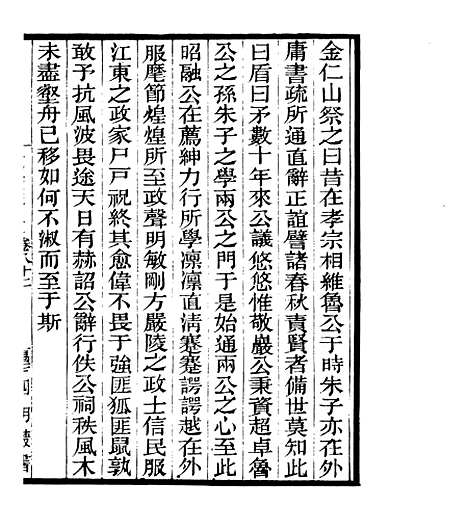 金仁山祭之曰昔在孝宗相維魯公于時朱子亦在外
庸書疏所通直辭正誼譬諸春秋責賢者備世莫知此
曰盾曰矛數十年來公議悠悠惟敬巖公秉資超卓魯
公之孫朱子之學兩公之門于是始通兩公之心至此
昭融公在薦紳力行所學凛凛直淸蹇蹇諤諤越在外
服麾節煌煌所至政聲明敏剛方嚴陵之政士信民服
江東之政家尸戸祝終其愈偉不畏于強匪狐匪鼠孰
敢予抗風波畏途天日有赫詔公辭行佚公祠秩風木
未盡壑舟已移如何不淑而至于斯